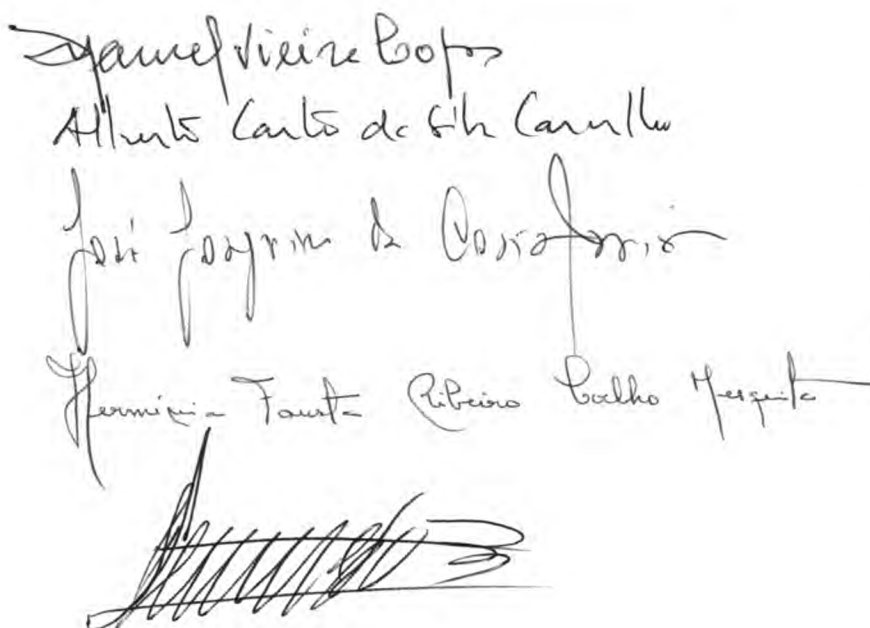 Manuel Vieira Lopes
Alberto Carlos da Silva Carvalho
José Joaquim da
Hermínia Fausta Ribeiro Coelho Mesquita